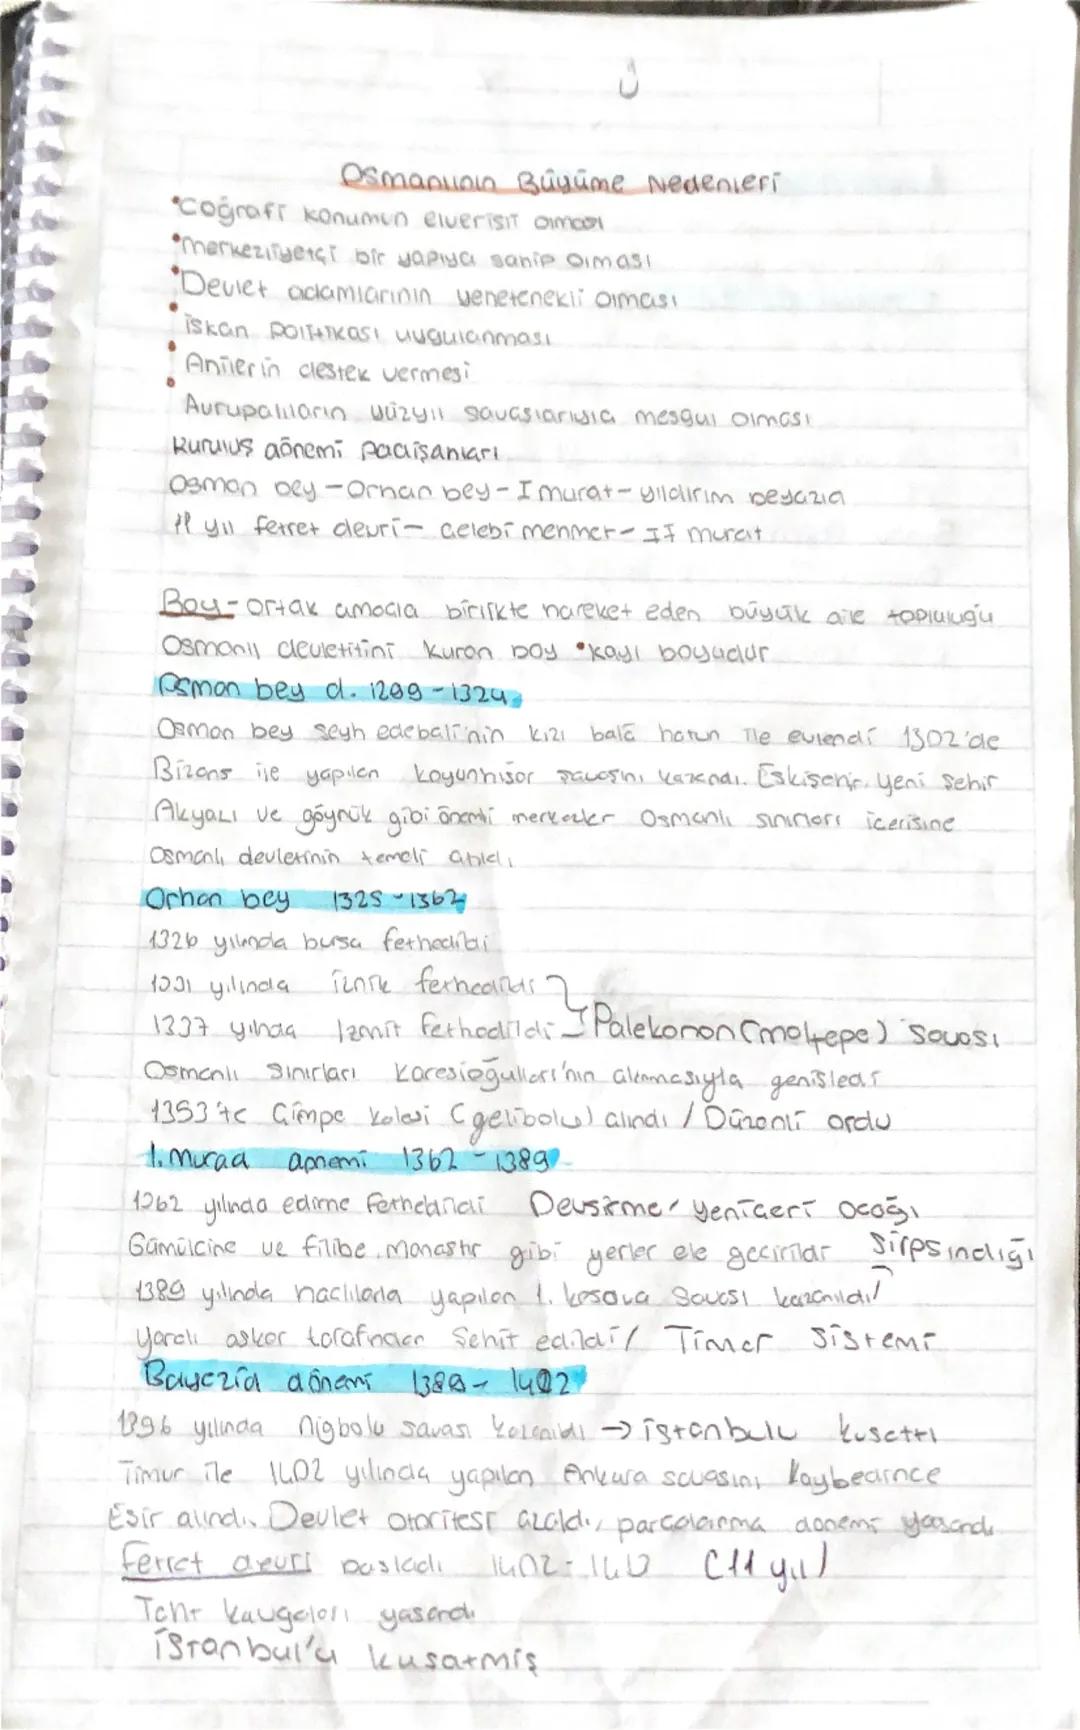 Osmanlının Büyüme Nedenleri
•Coğrafi konumun elverisli olması
•merkeziyetçi bir yapıya sahip olması
•Devlet adamlarının yenetenekli olması
• iskan politikası uygulanması
• Ahilerin destek vermesi
• Avrupalıların yüzyıl savaslarıyla mesgul olması
Kuruluş dönemi padişahları
Osman bey - Orhan bey - I murat - yıldırım beyazıd
11 yıl fetret devri - Çelebi mehmet - II murat
Boy - ortak amacla birlikte hareket eden büyük aile topluluğu
Osmanlı devletitini kuran boy •kayı boyudur
Osman bey d. 1299 - 1324
Osman bey seyh edebali'nin kızı bala hatun ile evlendi 1302'de
Bizans ile yapılan koyunhisar savasını kazandı. Eskişehir. yeni şehir
Akyazı ve göynük gibi önemli merkezler Osmanlı sınırları icerisine
Osmanlı devletinin temeli atıldı
Orhan bey 1325 - 1362
1326 yılında bursa fethedildi
1331 yılında iznik fethedildi
1337 yılında Izmit fethedildi } Palekanon (maltepe) Savası
Osmanlı sınırları Karesioğulları'nın alınmasıyla genişledi
1353'te Çimpe kalesi (gelibolu) alındı / Düzenli ordu
1. murad dönemi 1362 - 1389
1362 yılında edirne fethedildi Devsirme / yeniçeri ocağı
Gümülcine ve filibe. Manastır gibi yerler ele gecirildi Sirpsındığı
1389 yılında haclılarla yapılan 1. kosova Savası kazanıldı /
Yaralı asker tarafından Şehit edildi / Timar Sistemi
Bayezid dönemi 1389 - 1402
1396 yılında Nigbolu savası kazanıldı → istanbulu kusattı
Timur ile 1402 yılında yapılan Ankara savasını kaybedince
Esir alındı. Devlet otoritesi azaldı, parcalanma donemi yasandı
Fetret devri basladı 1402 - 1413 (11 yıl)
Taht kavgaları yasandı
istanbul'u kusatmiş